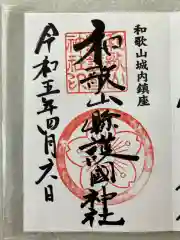 和歌山城内鎮座
和歌山縣護國神社
令和五年四月六日